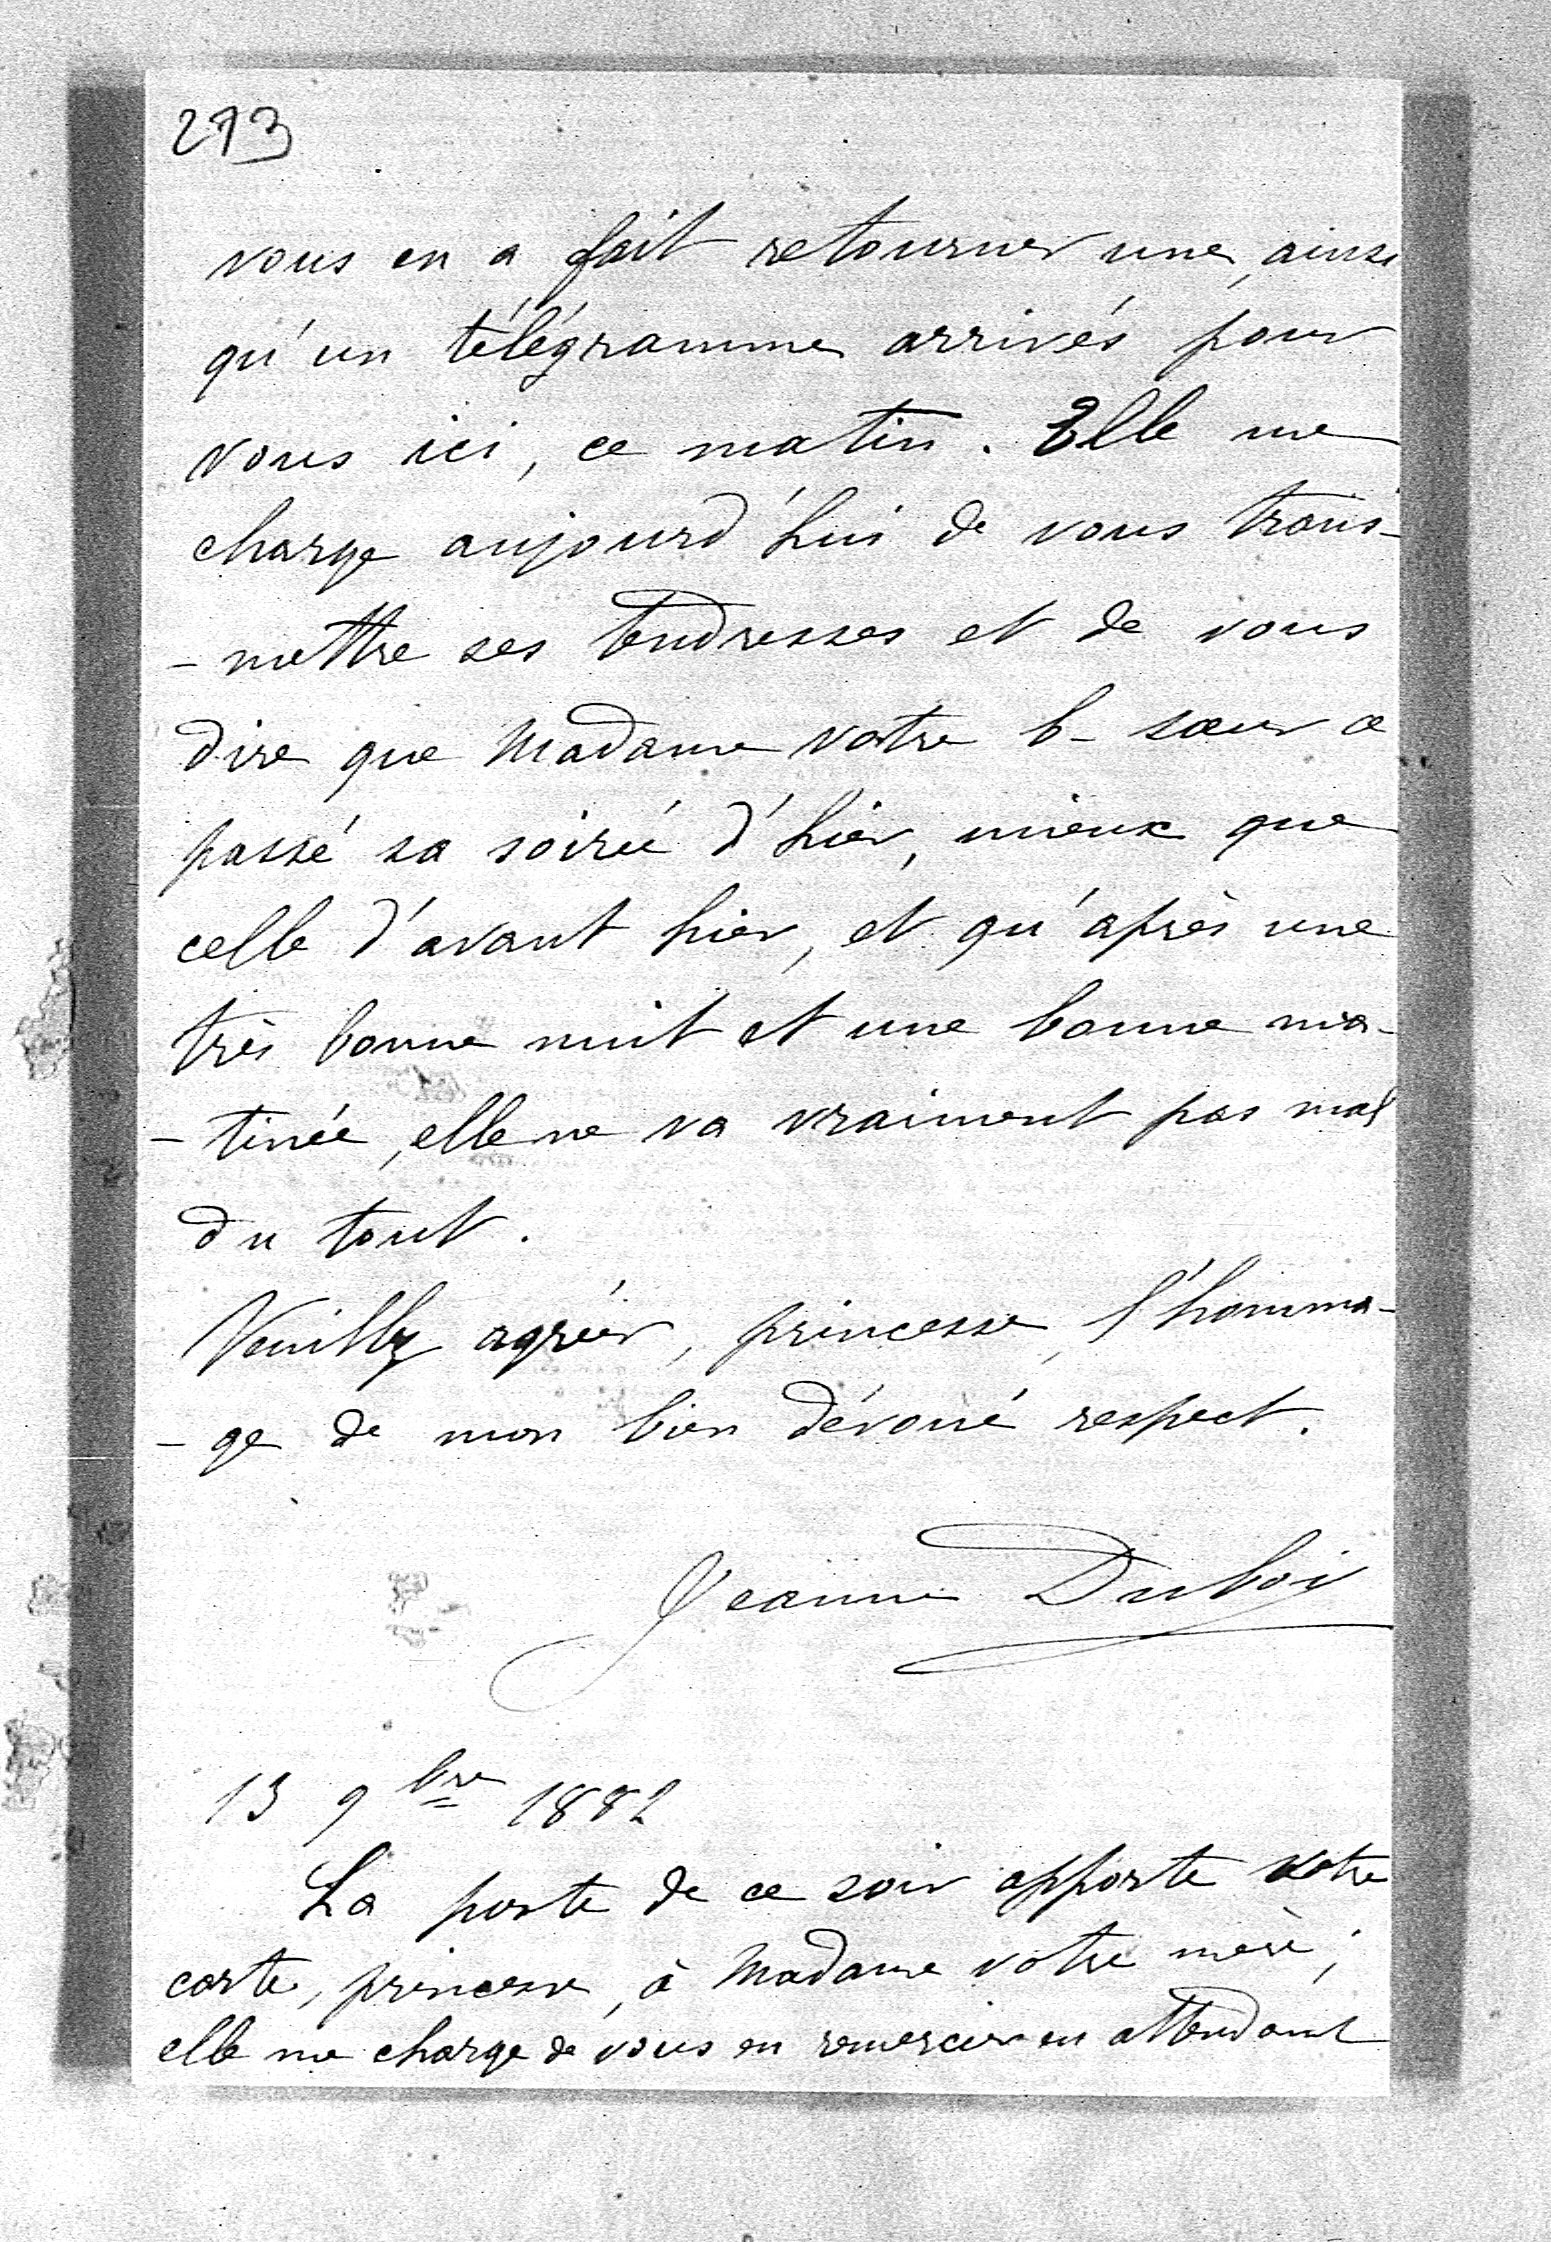 273
vous en a fait retourner une, ainsi
qu'un télégramme arrivés pour
vous ici, ce matin. Elle me
charge aujourd'hui de vous trans-
- mettre ses tendresses et de vous
dire que Madame votre b- sœur a
passé sa soirée d'hier, mieux que
celle d'avant hier, et qu'après une
très bonne nuit et une bonne ma-
- tinée, elle ne va vraiment pas mal
du tout.
Veuillez agréer, princesse, l'homma-
- ge de mon bien dévoué respect.
Jeanne Dubois
13 9bre 1882
La poste de ce soir apporte votre
carte, princesse, à Madame votre mère;
elle me charge de vous en remercier en attendant